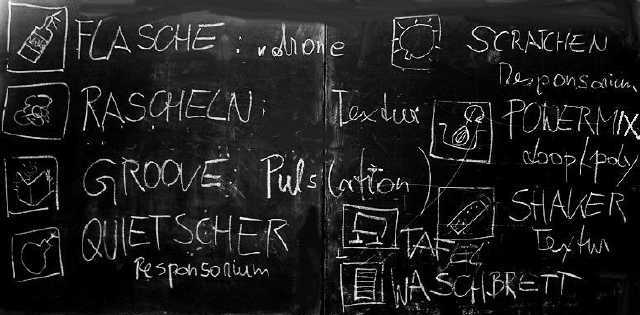 FLASCHE: drone
RASCHELN: Textur
GROOVE: Puls(ation)
QUIETSCHER
Responsorium
SCRATCHEN
Responsorium
POWERMIX
loop/poly
SHAKER
Textur
TAFEL
WASCHBRETT